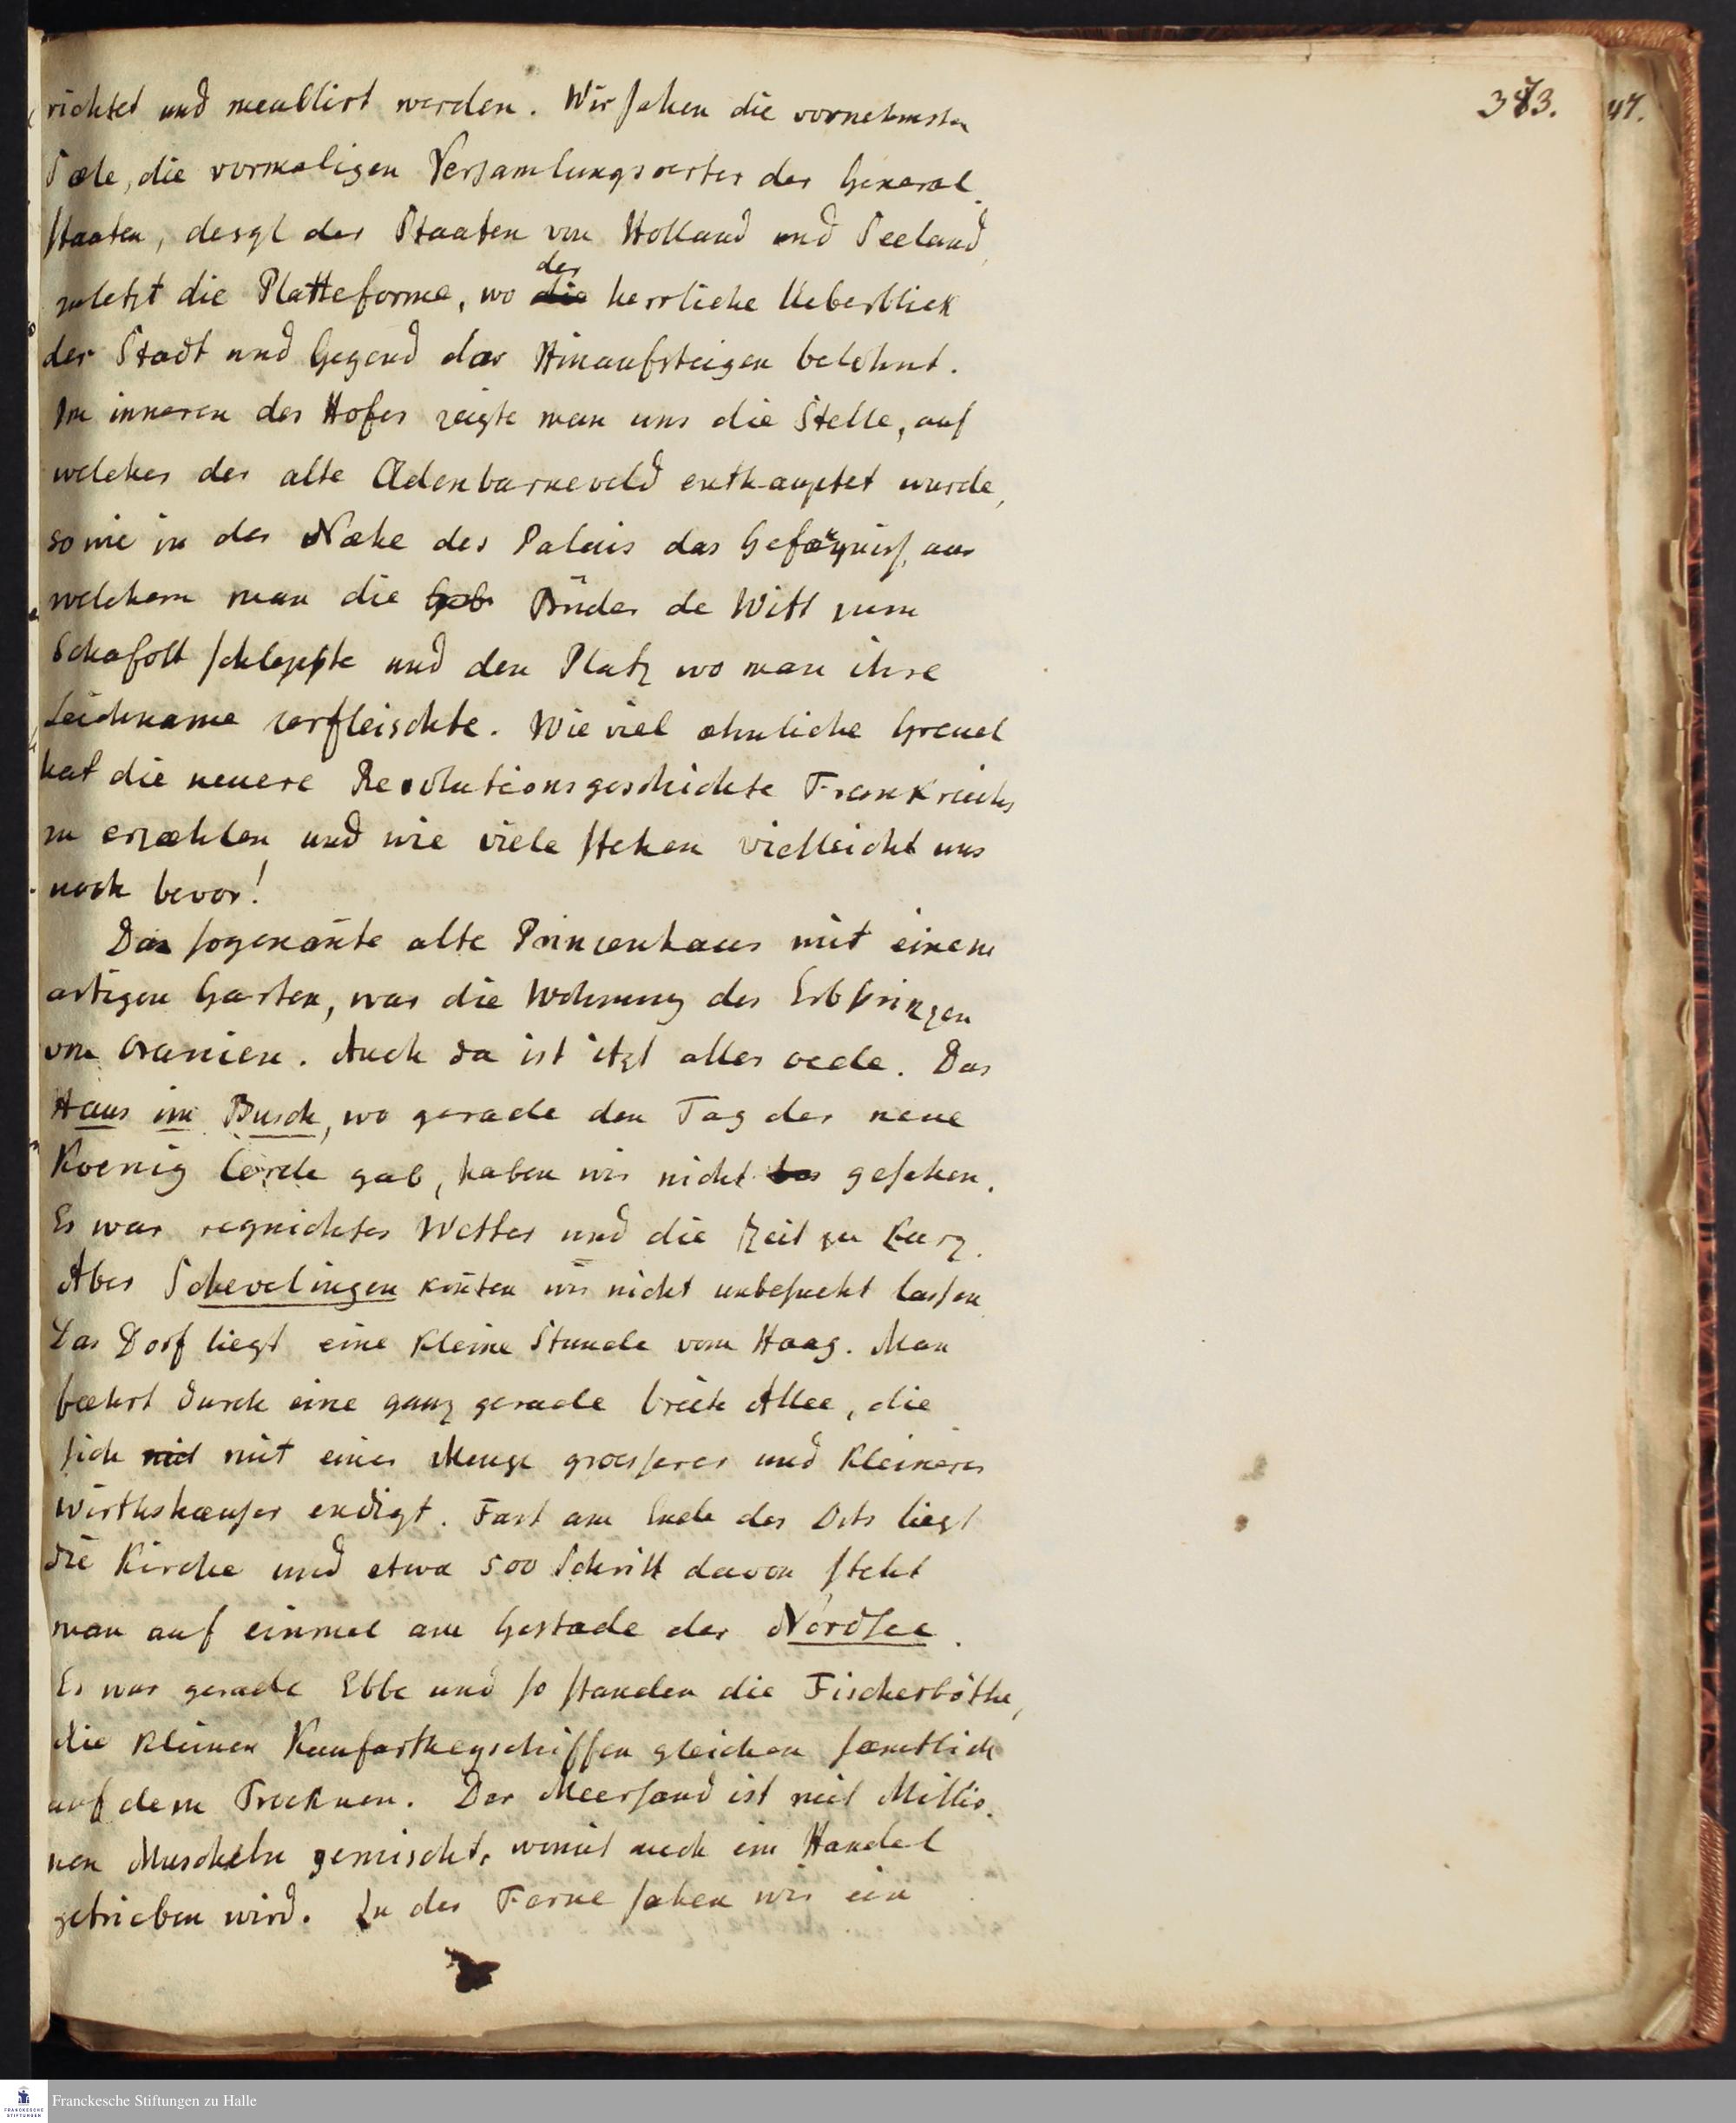 383. 47.
richtet und meublirt werden. Wir sahen die vornehmsten
Sæle, die vormaligen Versamlungsoerter der General-
staaten, desgl der Staaten von Holland und Seeland,
der
zuletzt die Platteforme, wo die herrliche Ueberblick
der Stadt und Gegend das Hinaufsteigen belohnt.
Im inneren des Hofes zeigte man uns die Stelle, auf
welcher der alte Oldenbarneveld enthauptet wurde,
so wie in der Næhe des Palais das Gefængniss, aus
welchem man die Geb Brüder de Witt zum
Schafott schleppte und den Platz wo man ihre
Leichname zerfleischte. Wie viel æhnliche Greuel
hat die neuere Revolutionsgeschichte Frankreichs
zu erzæhlen und wie viele stehen vielleicht uns
noch bevor!
Das sogenañte alte Prinzenhaus mit einem
artigen Garten, war die Wohnung des Erbprinzen
von Oranien. Auch da ist itzt alles oede. Das
Haus im Busch, wo gerade den Tag der neue
Koenig Cerde gab, haben wir nicht gesehen.
Es war regnichtes Wetter und die Zeit zu kurz.
Aber Schevelingen koñten wir nicht unbesucht lassen
Das Dorf liegt eine kleine Stunde vom Haag. Man
fæhrt durch eine ganz gerade breite Allee, die
sich mit einer Menge groesserer und kleinerer
Wirthshæuser endigt. Fast am Ende des Orts liegt
die Kirche und etwa 500 Schritt davon steht
man auf einmal am Gestade der Nordsee.
Es war gerade Ebbe und so standen die Fischerböthe,
die kleinen Kaufartheyschiffen gleichen sæmtlich
auf dem Trocknen. Der Meersand ist mit Millio-
nen Muscheln gemischt, womit auch ein Handel
getrieben wird. In der Ferne sahen wir ein
Franckesche Stiftungen zu Halle
FRANCKESCHE
STIFTUNGEN